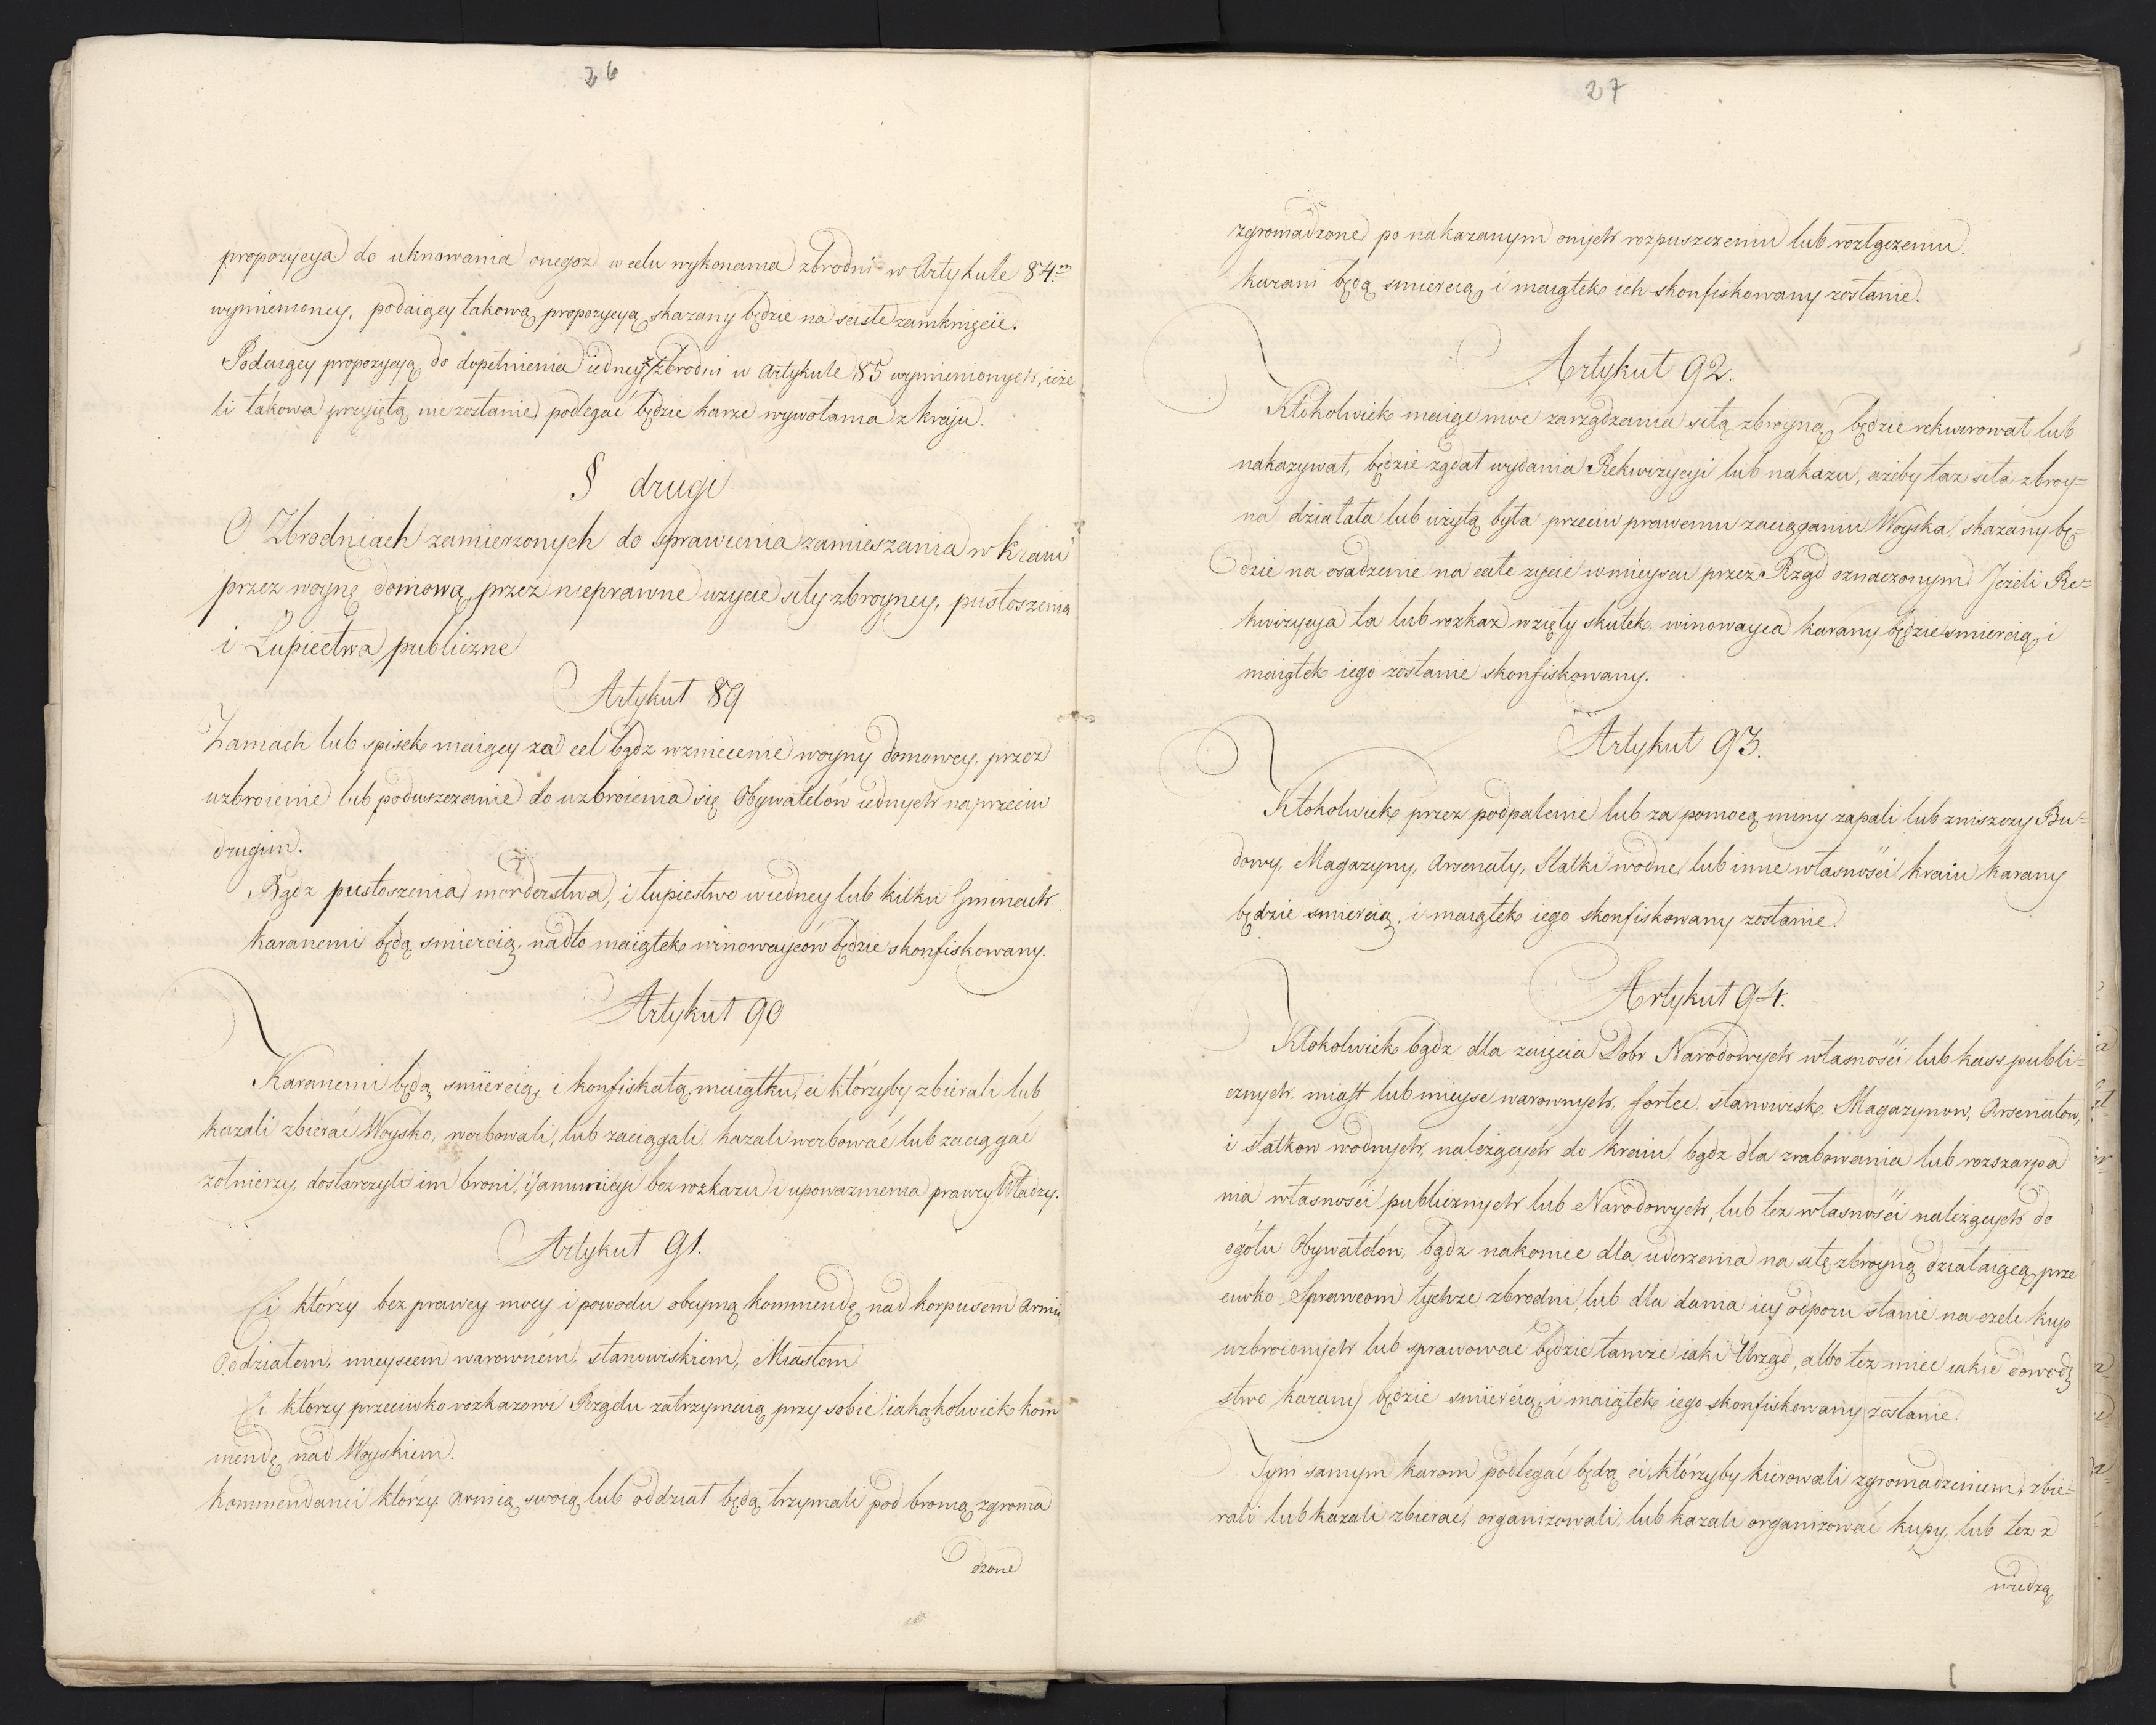 26
propozycya do uknowania onegoz w celu wykonania zbrodni w Artykule 84m
wymienioney, podaiący takową propozycyą skazany będzie na sciste zamknięcie.
Podaiący propozycyą do dopełnienia iedney z zbrodni w Artykule 85 wymienionych, ieże
li takowa przyiętą nie zostanie, podlegać będzie karze wywołania z kraju.
§ drugi
O Zbrodniach zamierzonych do sprawienia zamieszania w kraiu
przez woynę domową, przez nieprawne uzycie siły zbroyney, pustoszenia
i Łupiectwa publiczne
Artykuł 89
Zamach lub spisek maiący za cel bądz wzniecenie woyny domowey, przez
uzbroienie lub poduszczenie do uzbroienia się Obywatelów iednych naprzeciw
drugim.
Bądz pustoszenia, morderstwa, i łupiestwo w iedney lub kilku Gminach
karanemi będą smiercią, nadto maiątek winowayców będzie skonfiskowany.
Artykuł 90
Karanemi będą smiercią, i konfiskatą maiątku, ci którzyby zbierali lub
kazali zbierać Woysko, werbowali, lub zaciągali, kazali werbować lub zaciągać
zołnierzy, dostarczyli im broni, i ammunicyi bez rozkazu i upowaznienia prawey Władzy.
Artykuł 91.
Ci którzy bez prawey mocy i powodu obeymą kommendę nad korpusem Armii
Oddziałem, mieyscem warowném, stanowiskiem, Miastem.
Ci którzy przeciwko rozkazowi Rządu zatrzymaią przy sobie iakąkolwiek kom
mendę nad Woyskiem.
Kommendanci którzy Armią swoią lub oddział będą trzymali pod bronią, zgroma
dzone
27
zgromadzone po nakazanym onych rozpuszczeniu lub rozłączeniu.
karani będą smiercią, i maiątek ich skonfiskowany zostanie.
Artykuł 92.
Ktokolwiek maiąc moc zarządzania siłą zbroyną, będzie rekwirował lub
nakazywał, będzie ządał wydania Rekwizycyi lub nakazu, ażeby taz siła zbroy=
na działała lub użytą była przeciw prawemu zaciąganiu Woyska, skazany bę=
dzie na osadzenie na całe zycie w mieyscu przez Rząd oznaczonym. Jeżeli Re=
kwizycya ta lub rozkaz wzięły skutek winowayca karany będzie smiercią, i
maiątek iego zostanie skonfiskowany.
Artykuł 93.
Ktokolwiek przez podpalenie lub za pomocą miny zapali lub zniszczy Bu=
dowy, Magazyny, Arsenały, Statki wodne, lub inne własności kraiu karany
będzie smiercią, i maiątek iego skonfiskowany zostanie.
Artykuł 94.
Ktokolwiek bądz dla zaięcia Dobr Narodowych własności lub kass publi=
cznych, miast lub mieysc warownych, fortec, stanowisk, Magazynow, Arsenałow,
i statkow wodnych, należących do kraiu, bądz dla zrabowania lub rozszarpa
nia własności publicznych lub Narodowych, lub tez własności należących do
ogółu Obywatelów, bądz nakoniec dla uderzenia na siłę zbroyną działaiącą prze
ciwko Sprawcom tychze zbrodni, lub dla dania iey odporu stanie na czele kup
uzbroionych lub sprawować będzie tamże iaki Urząd, albo tez miec iakie dowodz
stwo karany będzie smiercią, i maiątek iego skonfiskowany zostanie.
Tym samym karom podlegać będą ci, którzyby kierowali zgromadzeniem, zbie=
rali lub kazali zbierać, organizowali, lub kazali organizować kupy, lub tez z
wiedzą